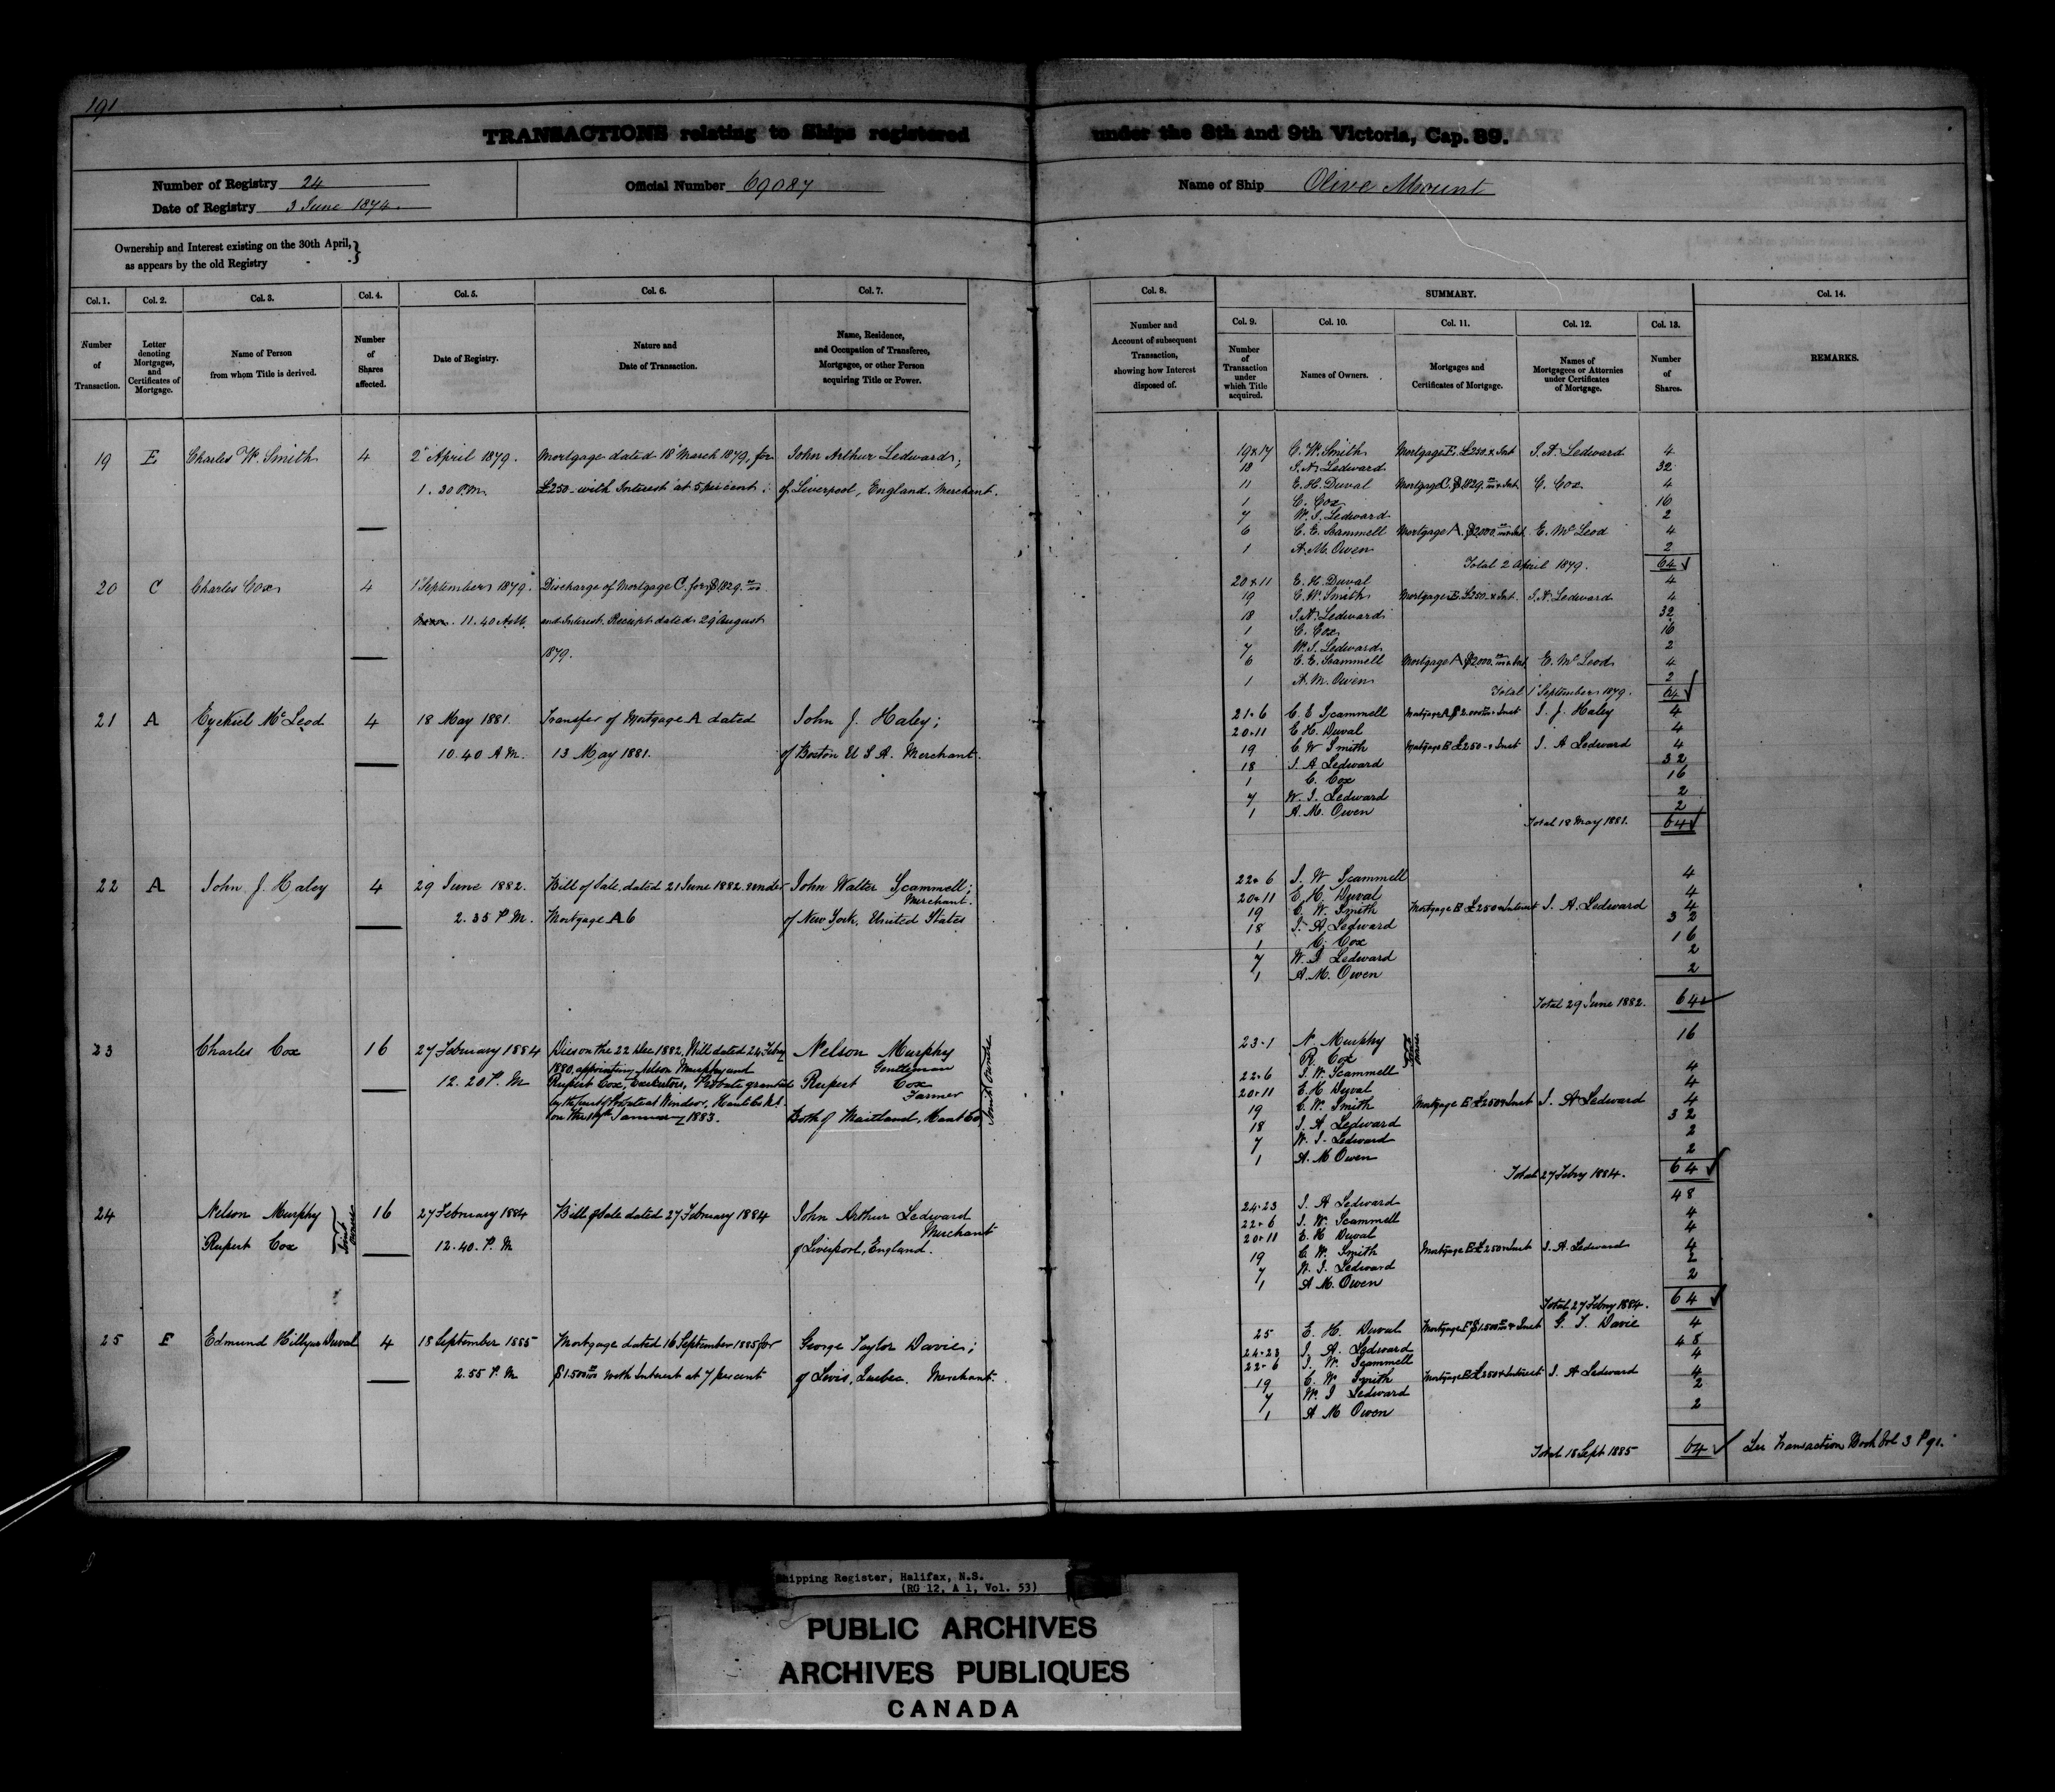 191
TRANSACTIONS relating to Ships registered under the 8th and 9th Victoria, Cap. 89.
Number of Registry 24
Date of Registry 3 June 1874.
Official Number 69087
Name of Ship Olive Mount
Ownership and Interest existing on the 30th April,
as appears by the old Registry - - }
Col. 1. Col. 2. Col. 3. Col. 4. Col. 5. Col. 6. Col. 7.
Number of Transaction.
Letter denoting Mortgages, and Certificates of Mortgage.
Name of Person from whom Title is derived.
Number of Shares affected.
Date of Registry.
Nature and Date of Transaction.
Name, Residence, and Occupation of Transferee, Mortgagee, or other Person acquiring Title or Power.
19 E Charles W. Smith 4 2 April 1879. Mortgage dated 18 March 1879, for John Arthur Ledward;
1.30 P.M. £250 with Interest at 5 per cent; of Liverpool, England. Merchant.
20 C Charles Cox 4 1 September 1879. Discharge of Mortgage C. for $1829.00
11.40 A.M. and Interest. Receipt dated 29 August
1879.
21 A Ezekiel McLeod 4 18 May 1881. Transfer of Mortgage A dated John J. Haley;
10.40 A.M. 13 May 1881. of Boston U S A. Merchant.
22 A John J. Haley 4 29 June 1882. Bill of Sale dated 21 June 1882 under John Walter Scammell;
Merchant.
2.35 P.M. Mortgage A 6 of New York, United States
23 Charles Cox 16 27 February 1884 Died on the 22 Dec 1882, Will dated 24 Febry Nelson Murphy
1880, appointing Nelson Murphy and Gentleman
12.20 P.M. Rupert Cox, Executors, Probate granted Rupert Cox
by the Court of Probate at Windsor, Hants Co N.S. Farmer
on the January 1883. Both of Maitland, Hants Co
Joint Owners
24 Nelson Murphy 16 27 February 1884 Bill of Sale dated 27 February 1884 John Arthur Ledward
Merchant
Rupert Cox Joint owners 12.40. P.M of Liverpool, England.
25 F Edmund Hillyar Duval 4 18 September 1885 Mortgage dated 16 September 1885 for George Taylor Davie;
2.55 P.M $1.500 00/100 with Interest at 7 per cent of Levis, Quebec. Merchant.
Col. 8. SUMMARY. Col. 14.
Col. 9. Col. 10. Col. 11. Col. 12. Col. 13.
Number and Account of subsequent Transaction, showing how Interest disposed of.
Number of Transaction under which Title acquired.
Names of Owners.
Mortgages and Certificates of Mortgage.
Names of Mortgagees or Attornies under Certificates of Mortgage.
Number of Shares.
REMARKS.
19 + 17 C. W. Smith Mortgage E. £250 & Int J. A. Ledward 4
18 J. A. Ledward 32
11 E. H. Duval Mortgage C. $1829.00 & Int. C. Cox 4
1 C. Cox 16
7 W. J. Ledward 2
6 C. E. Scammell Mortgage A. $2000.00 & Int. E. McLeod 4
1 A. M. Owen 2
Total 2 April 1879. 64
20 + 11 E. H. Duval 4
19 C. W. Smith Mortgage E £250 & Int. J. A. Ledward 4
18 J. A. Ledward 32
1 C. Cox 16
7 W. J. Ledward 2
6 C. E. Scammell Mortgage A $2000.00 & Int E. McLeod 4
1 A. M. Owen 2
Total 1 September 1879. 64
21 + 6 C. E Scammell Mortgage A $2.000 & Inst J. J. Haley 4
20 + 11 E H. Duval 4
19 C W Smith Mortgage E £250 & Inst J. A Ledward 4
18 J. A Ledward 32
1 C. Cox 16
7 W. J. Ledward 2
1 A. M. Owen 2
Total 18 May 1881. 64
22 + 6 J. W Scammell 4
20 + 11 E H Duval 4
19 C. W. Smith Mortgage E £250 & Interest J. A. Ledward 4
18 J. A. Ledward 32
1 C. Cox 16
7 W. J Ledward 2
1 A. M. Owen 2
Total 29 June 1882. 64
23 + 1 N. Murphy 16
R. Cox Joint owners
22 + 6 J. W. Scammell 4
20 + 11 E. H Duval 4
19 C. W. Smith Mortgage E £250 & Inst J. A Ledward 4
18 J. A. Ledward 32
7 W. J. Ledward 2
1 A. M Owen 2
Total 27 Febry 1884. 64
24 + 23 J. A Ledward 48
22 + 6 J. W. Scammell 4
20 + 11 E. H Duval 4
19 C. W. Smith Mortgage E £250 & Inst J. A. Ledward 4
7 W. J. Ledward 2
1 A M. Owen 2
Total 27 Febry 1884. 64
25 E. H. Duval Mortgage F $1.500 & Inst G. T. Davie 4
24 + 23 J. A. Ledward 48
22 + 6 J. W. Scammell 4
19 C. W. Smith Mortgage E £250 & Interest J. A Ledward 4
7 W. J Ledward 2
1 A M Owen 2
Total 18 Sept 1885 64 See Transaction Book Vol 3 P 91.
Shipping Register, Halifax, N.S.
(RG 12, A 1, Vol. 53)
PUBLIC ARCHIVES
ARCHIVES PUBLIQUES
CANADA